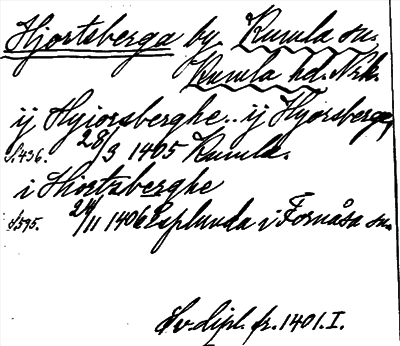 Hjortsberga by Kumla sn.
Kumla hd. Nrk.
ij Hyiorsberghe.. ij Hyorsberge,
S.436. 28/3 1405 Kumla.
i Hiortzberghe
S.595. 24/11 1406 Esplunda i Fornåsa sn.
Sv. dipl. fr. 1401. I.